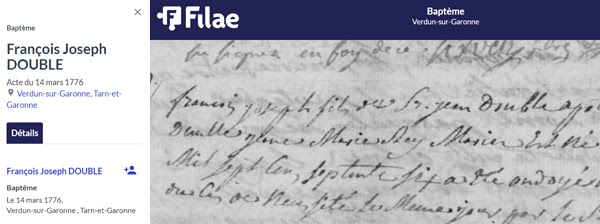 Baptême
François Joseph
DOUBLE
Acte du 14 mars 1776
Verdun-sur-Garonne, Tarn-et-
Garonne
Détails
François Joseph DOUBLE
Baptême
Le 14 mars 1776,
Verdun-sur-Garonne , Tarn-et-Garonne
Filae
Baptême
Verdun-sur-Garonne
en foy de ce
francois joseph fils de Sr. jean Double
Double Marie Rey Est né
Mil sept Cens septante six a été ondoyé
de